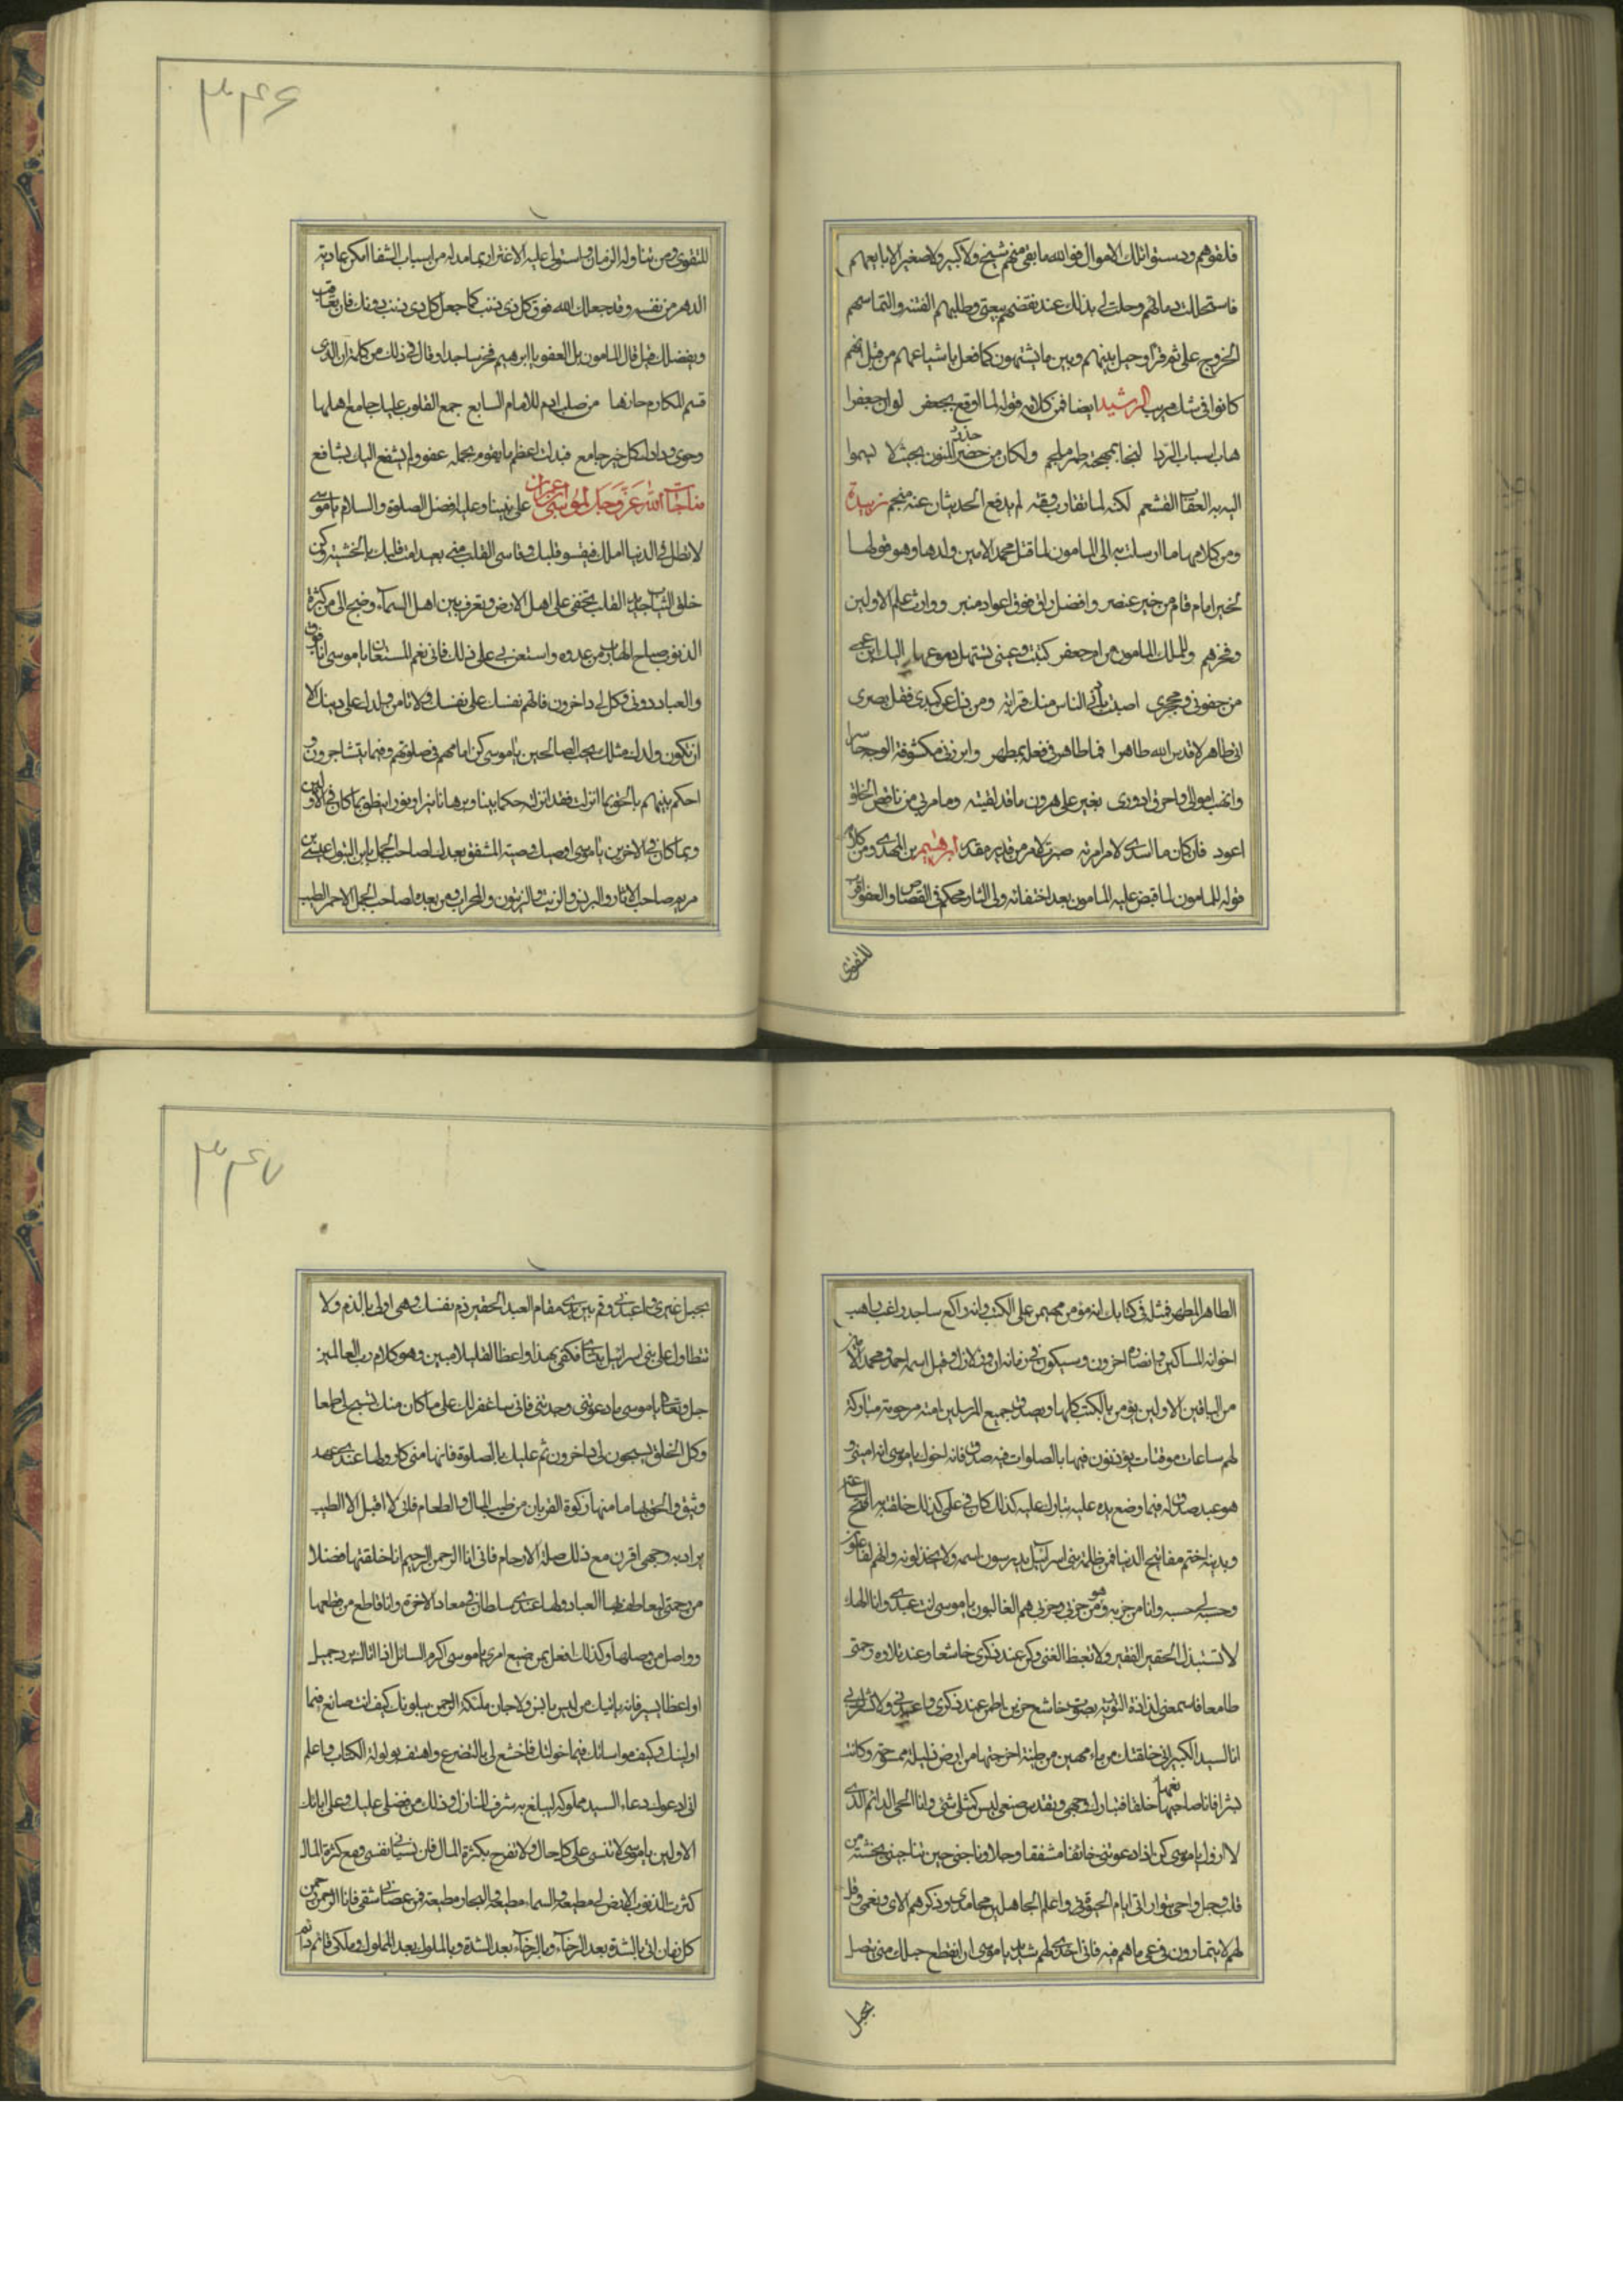 فلقوهم ودسستوا تلك الاموال فوالله ما بقي منهم شيخ ولا كبير ولا صغير الا بايعهم
فاستحللت دمائهم وحلت لي بذلك عند نقضهم بيعتي وطلبهم الفتنه والتماسهم
الخروج على ثم قرأ وحيل بينهم وبين ما يشتهون كما فعل باشياعهم من قبل انهم
كانوا في شك مريب الرشيد ايضا فمن كلامه قوله لما اوقع بجعفر لو ان جعفرا
هاب اسباب الردا لنجا بمهجته طمر ملجم ولكان من حذر المنون بحيث لا يسموا
اليه به العقاب القشعم لكنه لما تقارب وقته لم يدفع الحدثان عنه منجم زبيدة
ومن كلامها ما ارسلت به الى المامون لما قتل محمد الامين ولدها وهو قولها
لخير امام قام من خير عنصر وافضل راق فوق اعواد منبر ووارث علم الاولين
وفخرهم وللملك المامون من ام جعفر كتبت وعيني تستهل دموعها اليك ابن عمي
من جفوني ومحجري اصبت بادنى الناس منك قرابة ومن زل عن كبدي فقل بصري
اتى طاهر لا قدس الله طاهرا فما طاهر في فعله بمطهر وابرزني مكشوفة الوجه حاسرا
وانهب اموالي واحرق ادوري يعز على هرون ما قد لقيته وما مر بي من ناقص الخلق
اعور فان كان ما اسدى لامر امرته صبرت لامر من قدير مقدر ابرهيم بن المهدي ومن كلامه
قوله للمامون لما قبض عليه المامون بعد اختفائه ولي الثار محكم في القصاص والعفو اقرب
للتقوى
٣٤٦
للتقوى ومن تناوله الزمان واستولى عليه الاغترار بما مد له من اسباب الشقا امكن عادية
الدهر من نفسه وقد جعلك الله فوق كل ذي ذنب كما جعل كل ذي ذنب دونك فان تعاقب
وبفضلك قيل قال المامون بل العفو يا ابرهيم فخر ساجدا وقال في ذلك من كلمة ان الذي
قسم المكارم حازها من صلب ادم للامام السابع جمع القلوب عليك جامع اهلها
وحوى ودادك كل خير جامع فبذلت اعظم ما يقوم بحمله عفو ولم يشفع اليك بشافع
مناجات الله عز وجل لموسى بن عمران على نبينا وعليه افضل الصلوة والسلام يا موسى
لا تطل في الدنيا املك فيقسو قلبك وقاسي القلب مني بعيد امت قلبك بالخشية وكن
خلق الثياب جديد القلب تخفى على اهل الارض وتعرف بين اهل السمآء وضج الى من كثرة
الذنوب صياح الهارب من عدوه واستعن بي على ذلك فاني نعم المستعان يا موسى انا فوق
والعباد دوني وكل لي داخرون فاتهم نفسك على نفسك ولا تامن ولدك على دينك الا
ان تكون ولدك مثلك يحب الصالحين يا موسى كن امامهم في صلوتهم وفيما يتشاجرون و
احكم بينهم بالحق بما انزلت فقد انزلته حكما بينا وبرهانا نيرا ونورا ينطق بما كان في الاولين
وبما كان في الاخرين يا موسى اوصيك وصية المشفق بعدك لصاحب الجمل بابن البتول عيسى بن
مريم صاحب الاتان والبرنس والزيت والزيتون والمحراب ومن بعده لصاحب الجمل الاحمر الطيب
الطاهر المطهر فمثله في كتابك انه مؤمن مهيمن على الكتب وانه راكع ساجد راغب راهب
اخوانه المساكين وانصاره اخرون وسيكون في زمانه ازل وزلازل وقتل اسمه احمد ومحمد الامين
من الباقين الاولين يؤمن بالكتب كلها ويصدق جميع المرسلين امته مرحومة مباركة
لهم ساعات موقتات يؤذنون فيها بالصلوات فبه صدق فانه اخوك يا موسى انه اميني و
هو عبد صدق له فيما وضع يده عليه تبارك عليه كذلك كان في علمي كذلك خلقته به افتح الساعة
وبدينه اختم مفاتيح الدنيا فمر ظلمة بني اسرائيل لا يدرسون اسمه ولا يخذلونه وانهم لفاعلون
وحبه لي حسبه وانا من حزبه وهو من حزبي وحزبي هم الغالبون يا موسى انت عبدي وانا الهك
لا تستذل الحقير الفقير ولا تغبط الغني وكن عند ذكري خاشعا وعند تلاوة رحمتي
طامعا فاسمعني لذاذة التورية بصوت خاشع حزين اطمئن عند ذكري واعبدني ولا تشرك بي
انا السيد الكبير اني خلقتك من ماء مهين من طينة اخرجتها من ارض ذليلة ممسوخة وكانت
بشرا فانا صانعها خلقا فتبارك وجهي وتقدس صنعي ليس كمثلي شئ وانا الحي الدائم الذي
لا ازول يا موسى كن اذا دعوتني خائفا مشفقا وجلا وناجني حين تناجيني بخشية من
قلب وجل واحي بتوراتي ايام الحيوة وعلم الجاهلين محامدي وذكرهم الائي ونعمي وقل
لهم لا يتمادون في غي ما هم فيه فاني اخذي لهم شديد يا موسى ان انقطع حبلك مني لم يتصل
بحبل
٣٤٧
بحبل غيري فاعبدني وقم بين يدي مقام العبد الحقير ذم نفسك وهي اولى بالذم ولا
تتطاول على بني اسرائيل بكتابي فكفى بهذا واعظا لقلبك لامبين وهو كلام رب العالمين
جل وتعالى يا موسى ما دعوتني وجدتني فاني ساغفر لك على ما كان منك تسبح لي طمعا
وكل الخلق يسبحون لي داخرون ثم عليك بالصلوة فانها مني كان ولها عندي عهد
وثيق والحق بها ما منها زكوة القربان من طيب المال والطعام فاني لا اقبل الا الطيب
يراد به وجهي اقرن مع ذلك صلة الارحام فاني انا الرحمن الرحيم انا خلقتها فضلا
من رحمتي ليتعاطف بها العباد ولها عندي سلطان في معاد الاخرة وانا قاطع من قطعها
وواصل من وصلها وكذلك افعل بمن ضيع امري يا موسى اكرم السائل اذا اتاك برد جميل
او اعطاء يسير فانه ياتيك من ليس بانس ولا جان ملئكة الرحمن يبلونك كيف انت صانع فيما
اوليتك وكيف مواساتك فيما خولتك فاخشع لي بالتضرع واهتف بولولة الكتاب واعلم
اني ادعوك دعاء السيد مملوكه ليبلغ به شرف المنازل وذلك من فضلي عليك وعلى ابائك
الاولين يا موسى لا تنسني على كل حال ولا تفرح بكثرة المال فان نسياني يقسي ومع كثرة المال
كثرت الذنوب الارض لي مطيعة والسماء مطيعة والبحار مطيعة فمن عصاني شقي فانا الرحمن رحمن
كل زمان اتي بالشدة بعد الرخآء وبالرخآء بعد الشدة وبالملوك بعد الملوك وملكي قائم دائم